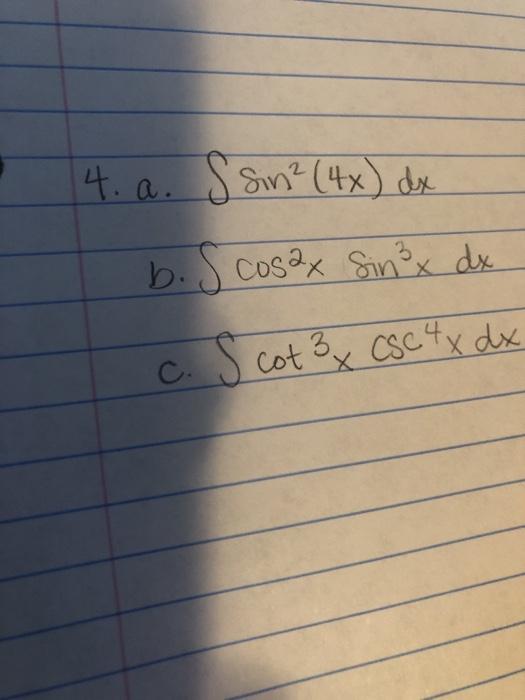 4. a. ∫ sin² (4x) dx
b. ∫ cos²x sin³x dx
c. ∫ cot³x csc⁴x dx